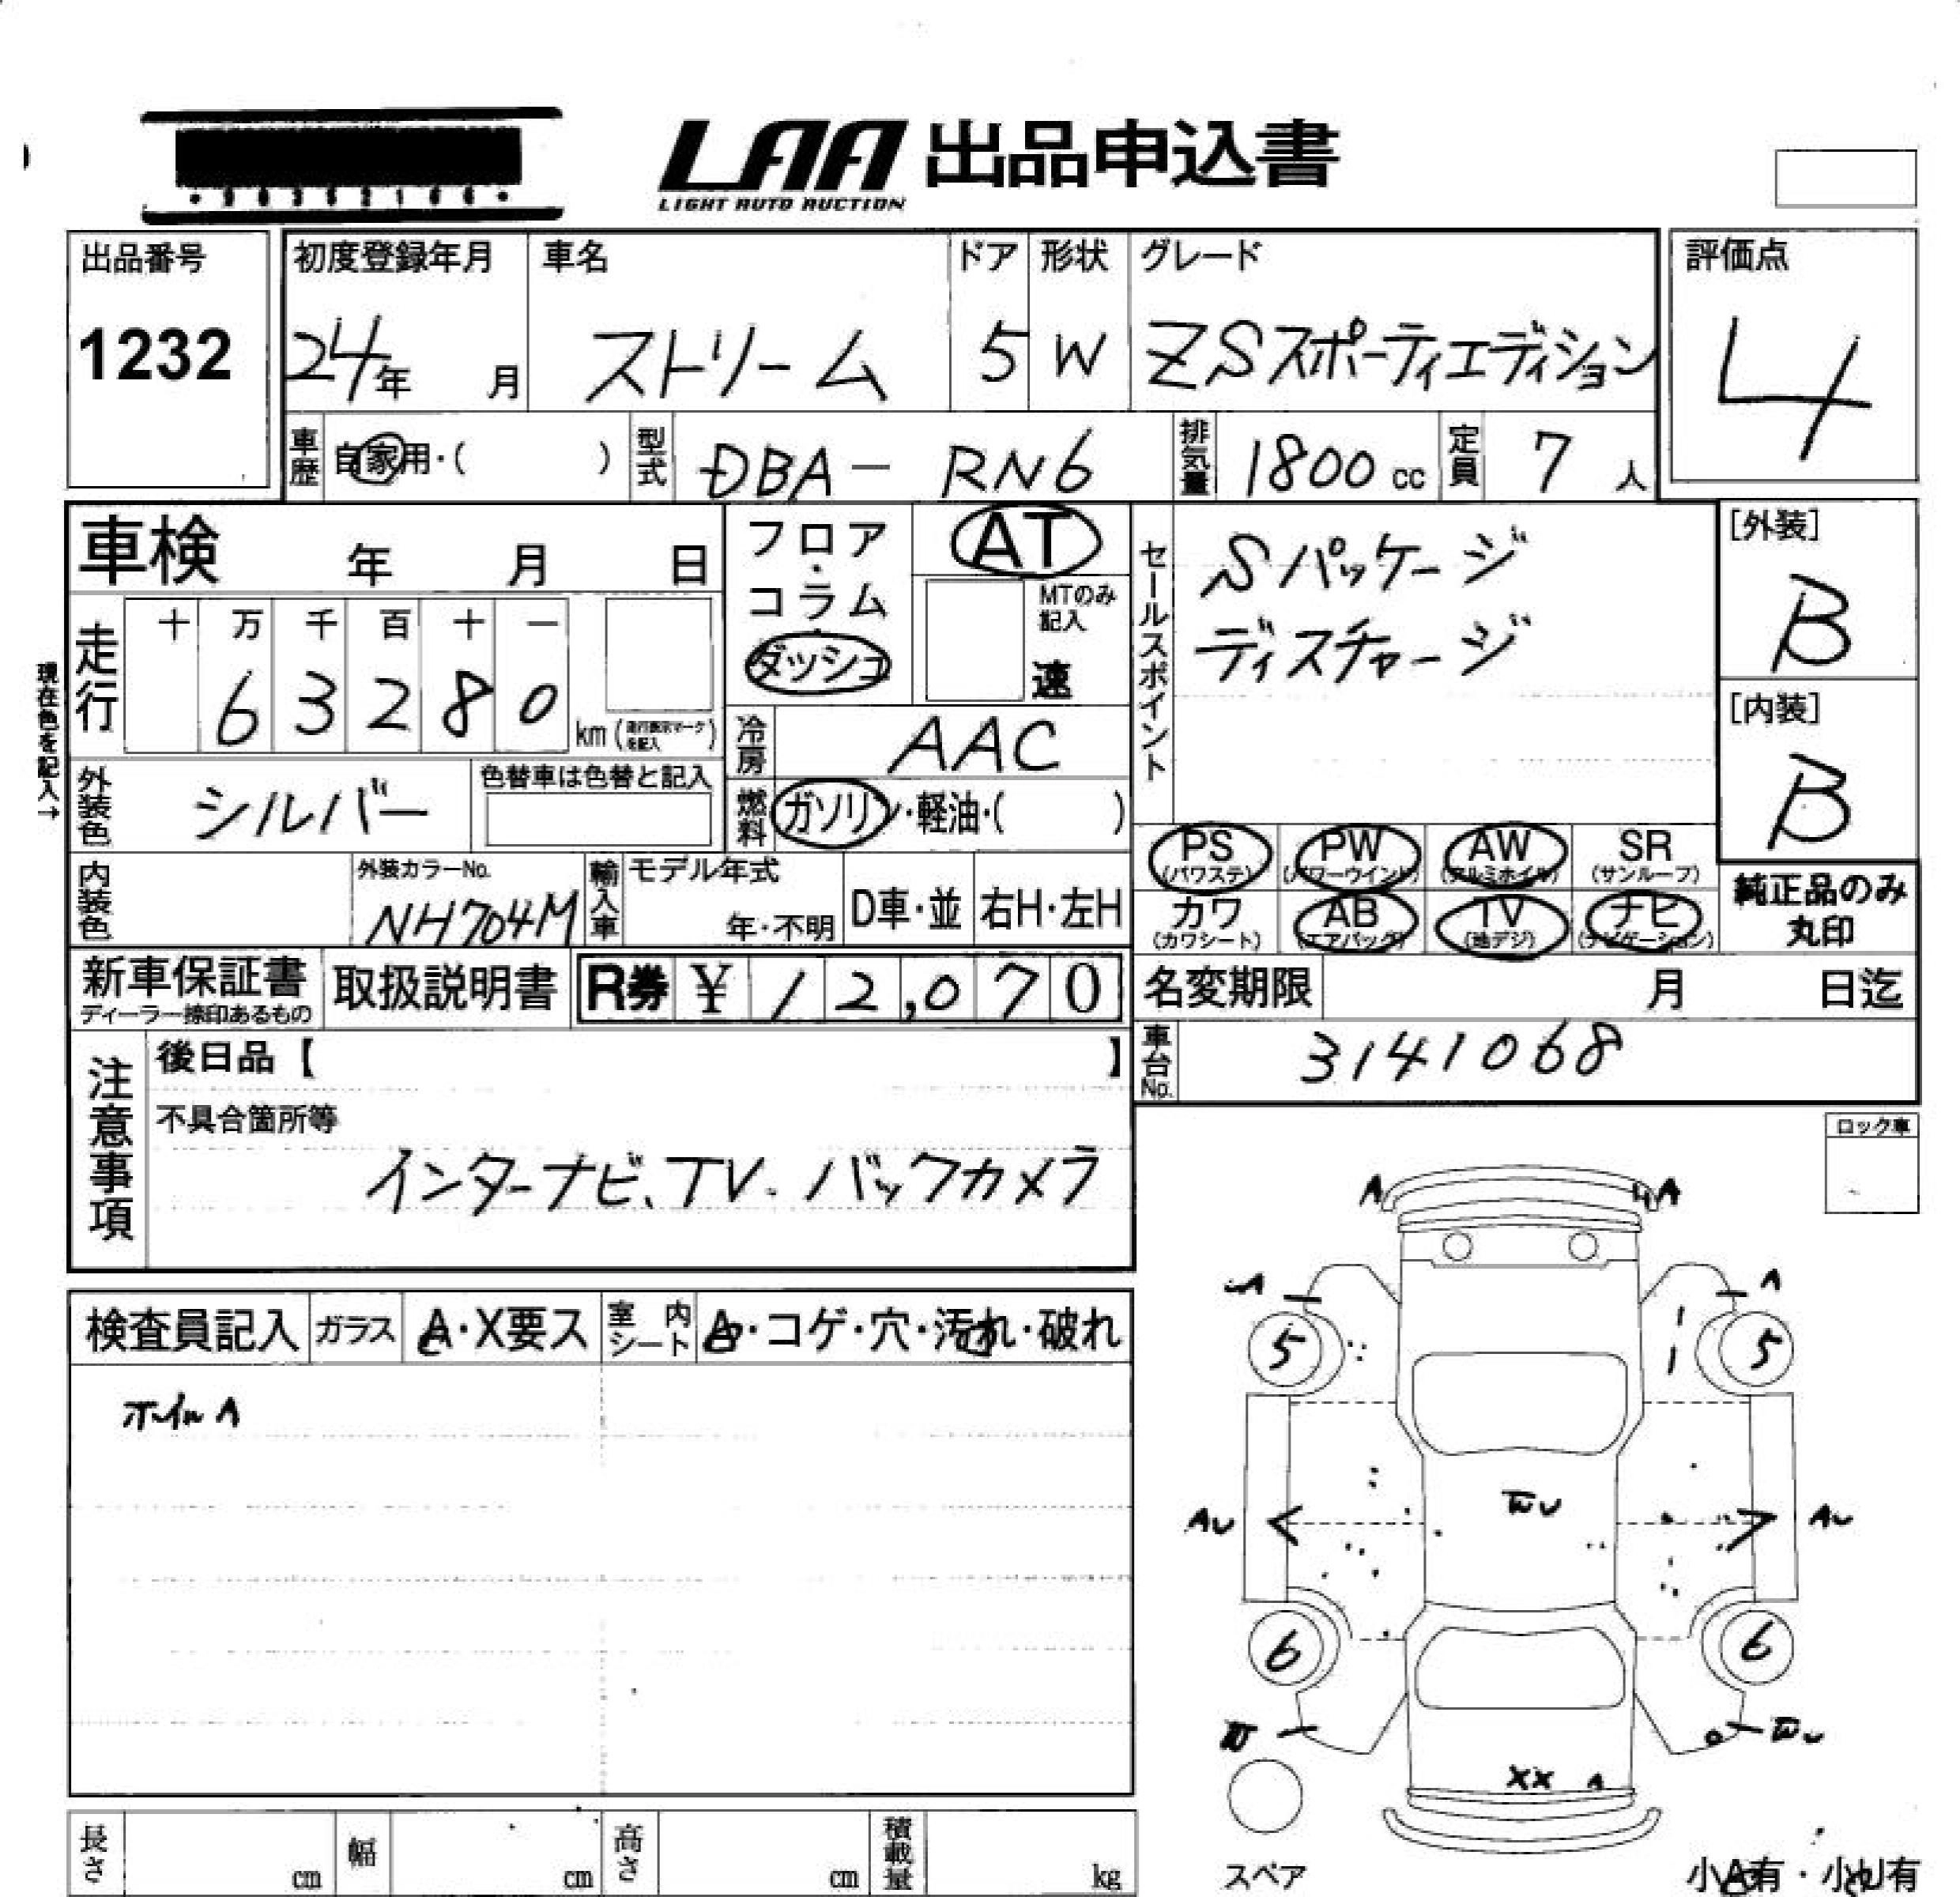 LAA 出品申込書
LIGHT AUTO AUCTION
出品番号
1232
初度登録年月
24年 月
車名
ストリーム
ドア
5
形状
W
グレード
ZSスポーティエディション
評価点
4
車歴 自家用・( )
型式 DBA- RN6
排気量 1800 cc
定員 7 人
車検 年 月 日
フロア・コラム・ダッシュ
AT
MTのみ記入
速
セールスポイント
Sパッケージ
ディスチャージ
[外装]
B
[内装]
B
現在色を記入→
走行
十 万 千 百 十 一
6 3 2 8 0
km
冷房 AAC
外装色 シルバー
色替車は色替と記入
燃料 ガソリン・軽油・( )
PS (パワステ)
PW (パワーウインド)
AW (アルミホイル)
SR (サンルーフ)
カワ (カワシート)
AB (エアバック)
TV (地デジ)
ナビ (ナビゲーション)
純正品のみ丸印
内装色
外装カラーNo.
NH704M
輸入車
モデル年式
年・不明
D車・並
右H・左H
新車保証書
ディーラー捺印あるもの
取扱説明書
R券 ¥ 12,070
名変期限 月 日迄
車台No. 3141068
注意事項
後日品【 】
不具合箇所等
インターナビ、TV. バックカメラ
ロック車
検査員記入
ガラス A・X要ス
室内シート A・コゲ・穴・汚れ・破れ
ホイルA
A A
A A
5 5
AU AU
6 6
XX A
スペア
長さ cm
幅 cm
高さ cm
積載量 kg
小A有・小U有